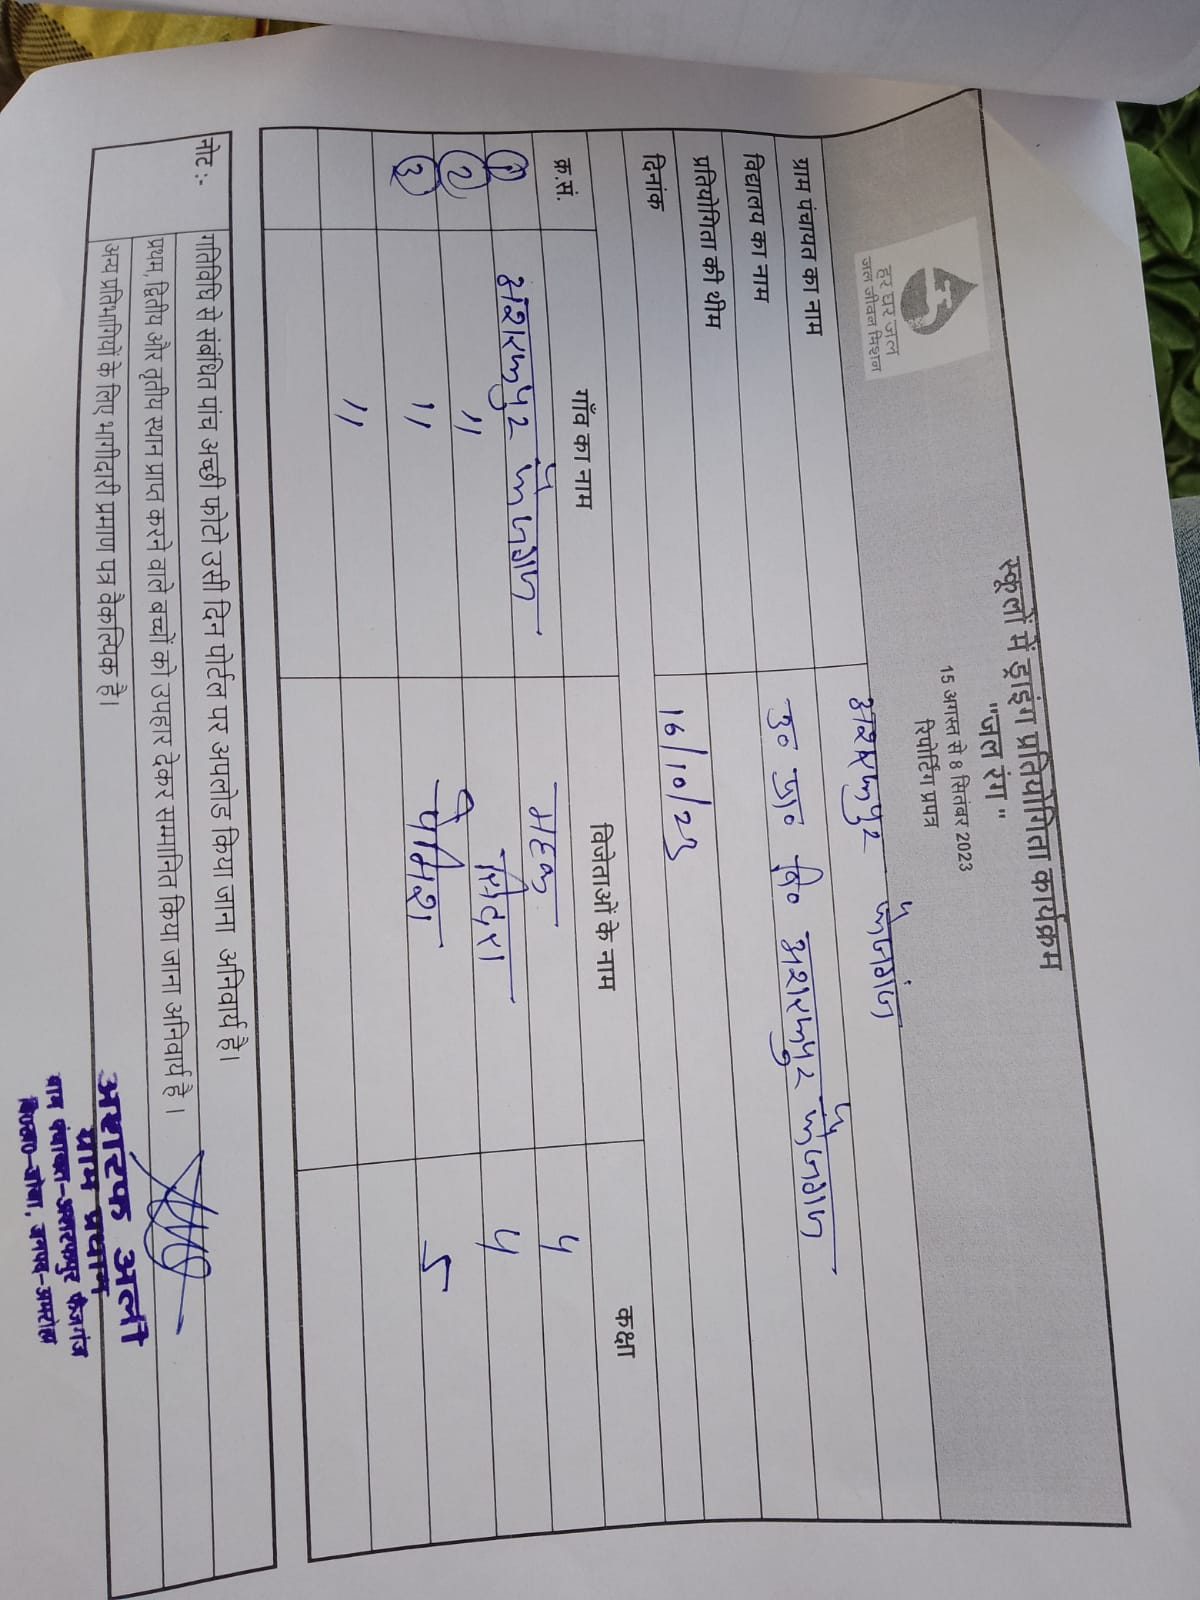 हर घर जल
जल जीवन मिशन
स्कूलों में ड्राइंग प्रतियोगिता कार्यक्रम
"जल रंग"
15 अगस्त से 8 सितंबर 2023
रिपोर्टिंग प्रपत्र
ग्राम पंचायत का नाम अशरफपुर फैजगंज
विद्यालय का नाम उ० प्रा० वि० अशरफपुर फैजगंज
प्रतियोगिता की थीम
दिनांक 16/10/23
क्र.सं. गाँव का नाम विजेताओं के नाम कक्षा
1 अशरफपुर फैजगंज महक
2 "
3 " 5
"
नोट:- गतिविधि से संबंधित पांच अच्छी फोटो उसी दिन पोर्टल पर अपलोड किया जाना अनिवार्य है।
प्रथम, द्वितीय और तृतीय स्थान प्राप्त करने वाले बच्चों को उपहार देकर सम्मानित किया जाना अनिवार्य है।
अन्य प्रतिभागियों के लिए भागीदारी प्रमाण पत्र वैकल्पिक है।
अशरफ अली
ग्राम प्रधान
ग्राम पंचायत-अशरफपुर फैजगंज
वि०ख०-जोया, जनपद-अमरोहा